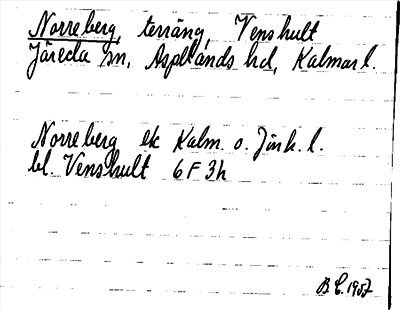 Norreberg, terräng, Venshult
Järeda sn, Asplands hd, Kalmar l.
Norreberg ek Kalm. o. Jönk. l.
bl. Venshult 6 F 3h
B.E. 1957